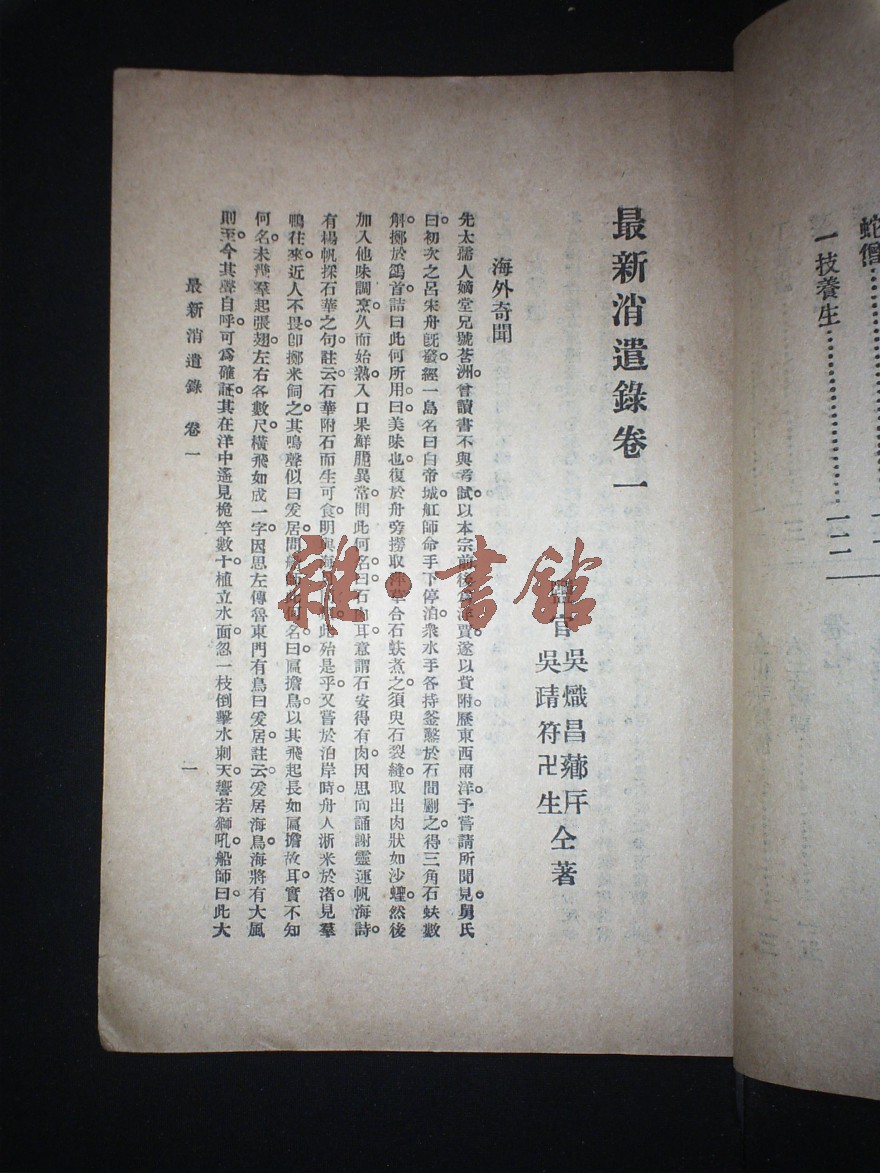 蛇僧
一技養生…………一二一
最新消遣錄卷一
鹽官 吳熾昌薌厈
吳晴符卍生 仝著
海外奇聞
先太孺人嫡堂兄號莟洲曾讀書不與考試以本宗前後合洋賈遂以貨附歷東西兩洋予嘗請所聞見舅氏
曰初次之呂宋舟旣發經一島名曰白帝城舡師命手下停泊衆水手各持釜鑿於石間劚之得三角石蚨數
斛擲於鷁首詰曰此何所用曰美味也復於舟旁撈取洋草合石蚨煮之須臾石裂縫取出肉狀如沙蟶然後
加入他味調烹久而始熟入口果鮮脆異常問此何名曰石肉耳意謂石安得有肉因思向誦謝靈運帆海詩
有楊帆採石華之句註云石華附石而生可食明與海此殆是乎又嘗於泊岸時舟人淅米於渚見羣
鴨往來近人不畏卽擲米飼之其鳴聲似曰爰居問船師此何名曰匾擔鳥以其飛起長如匾擔故耳實不知
何名未幾羣起張翅左右各數尺橫飛如成一字因思左傳魯東門有鳥曰爰居註云爰居海鳥海將有大風
則至今其聲自呼可爲確証其在洋中遙見桅竿數十植立水面忽一枝倒擊水刺天響若獅吼船師曰此大
最新消遣錄 卷一
一
雜·書館